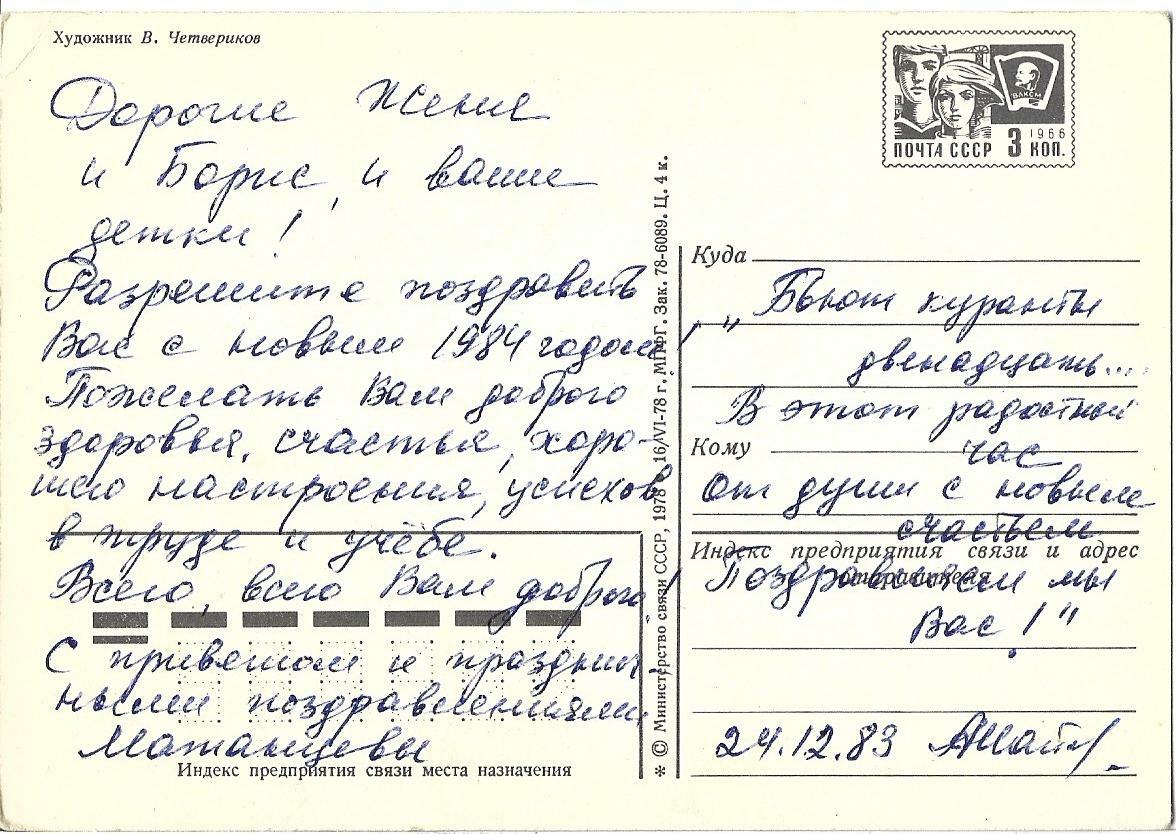 Художник В. Четвериков
Дорогие Жение
и Борис, и ваши
детки!
Разрешите поздравить
Вас с новым 1984 годом!
Пожелать Вам доброго
здоровья, счастья, хоро-
шего настроения, успехов
в труде и учёбе.
Всего, всего Вам доброго!
С приветом и празднич-
ными поздравлениями
Индекс предприятия связи места назначения
* © Министерство связи СССР, 1978 г. 16/VI-78 г. МПФГ. Зак. 78-6089. Ц. 4 к.
ВЛКСМ
1966
ПОЧТА СССР 3 КОП.
Куда
„Бьют куранты
двенадцать....
В этот радостный
Кому
час
От души с новым
счастьем
Индекс предприятия связи и адрес
отправителя
Поздравляем мы
Вас!"
24.12.83